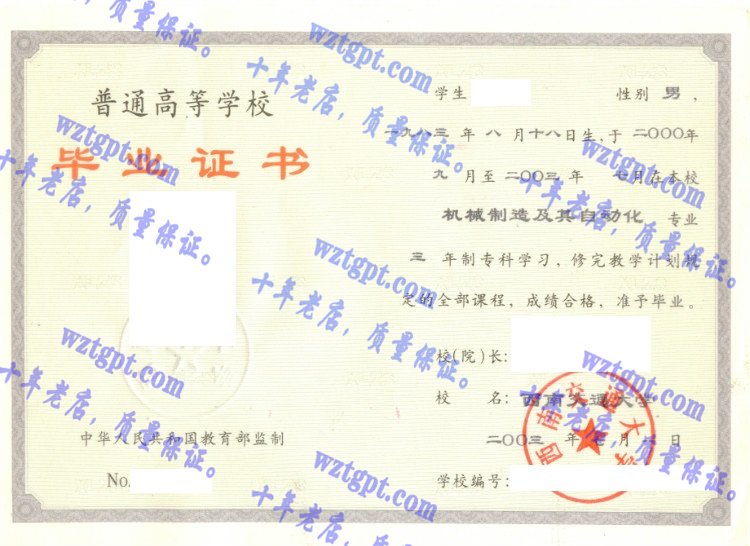 普通高等学校
毕业证书
中华人民共和国教育部监制
No.
学生 性别 男,
一九八三 年 八 月十八日生,于 二〇〇〇年
九 月至 二〇〇三 年 七月在本校
机械制造及其自动化 专业
三 年制专科学习,修完教学计划规
定的全部课程,成绩合格,准予毕业。
校(院)长:
校 名:西南交通大学
二〇〇三 年 七 月 八 日
学校编号:
西南交通大学
质量保证。
wztgpt.com
十年老店,质量保证。
wztgpt.com
十年老店,质量保证。
wztgpt.com
十年老店,质量保证。
wztgpt.com
十年老店,质量保证。
wztgpt.com
十年老店,质量保证。
wztgpt.com
十年老店,质量保证。
wztgpt.com
十年老店,质量保证。